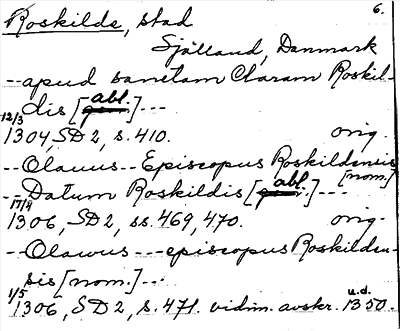 6.
Roskilde, stad
Sjælland, Danmark
--apud sanctam Claram Roskil-
dis [abl.]---
12/3
1304, SD 2, s. 410. orig.
--Olauus--Episcopus Roskildensis
[nom.]
--Datum Roskildis [abl.]---
17/4
1306, SD 2, ss. 469, 470. orig.
--Olawus---episcopus Roskilden-
sis [nom.]---
1/5
1306, SD 2, s. 471. vidim. avskr. u.d. 1350.